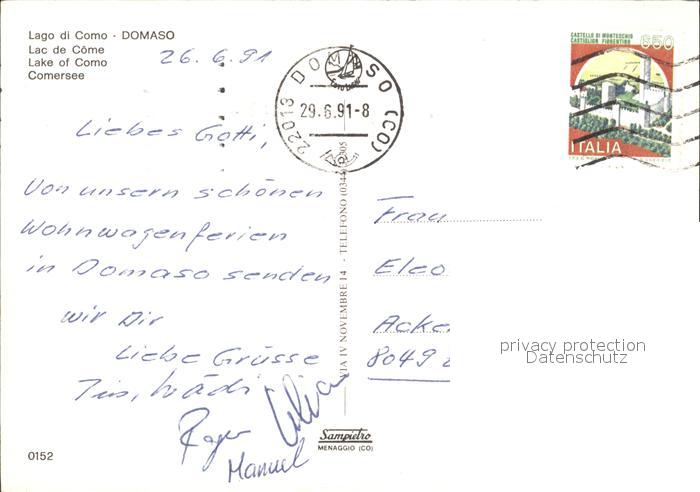 Lago di Como - DOMASO
Lac de Côme
Lake of Como
Comersee
26.6.91
Liebes Gotti,
Von unsern schönen
Wohnwagenferien
in Domaso senden
wir Dir
Liebe Grüsse
Roger
Manuel
0152
22013 DOMASO (CO)
29.6.91-8
VIA IV NOVEMBRE 14 - TELEFONO (0344)
Sampietro
MENAGGIO (CO)
CASTELLO DI MONTECCHIO
CASTIGLION FIORENTINO
650
ITALIA
Frau
Eleo
Acke
8049
privacy protection
Datenschutz